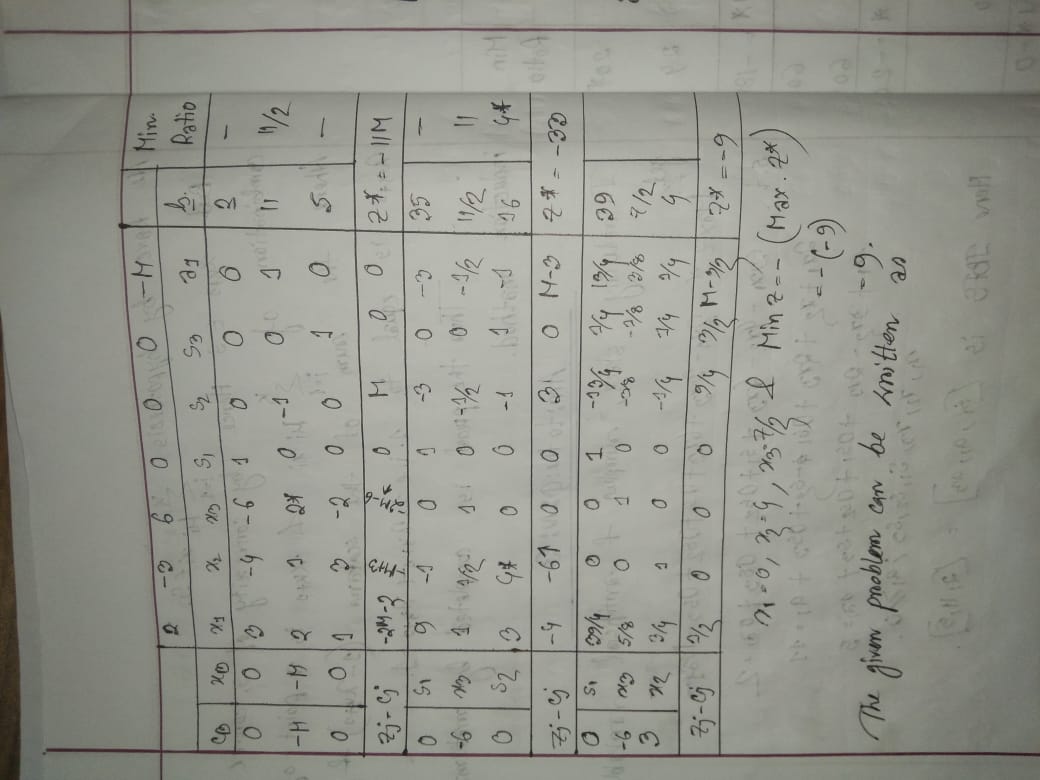 2 -3 6 0 0 0 -M
CB xB x1 x2 x3 s1 s2 s3 a1 b Min. Ratio
0 0 3 -4 -6 1 0 0 0 2 -
-M -M 2 1 2* 0 -1 0 1 11 11/2
0 0 1 3 -2 0 0 1 0 5 -
Zj-Cj -2M-2 0 M 0 0 Z* = -11M
0 s1 9 -1 0 1 -3 0 -3 35 -
-6 x3 1 1/2 1 0 -1/2 0 -1/2 11/2 11
0 s2 3 4* 0 0 -1 1 -1 16 4*
Zj-Cj -4 -6 0 0 3 0 M-3 Z* = -33
0 s1 39/4 0 0 1 -13/4 1/4 13/4 39
-6 x3 5/8 0 1 0 -3/8 -1/8 3/8 7/2
3 x2 3/4 1 0 0 -1/4 1/4 1/4 4
Zj-Cj 0 0 0 9/4 3/2 Z* = -9
x1=0, x2=4, x3=7/2 & Min Z = -(Max. Z*)
= -(-9)
= 9.
The given problem can be written as